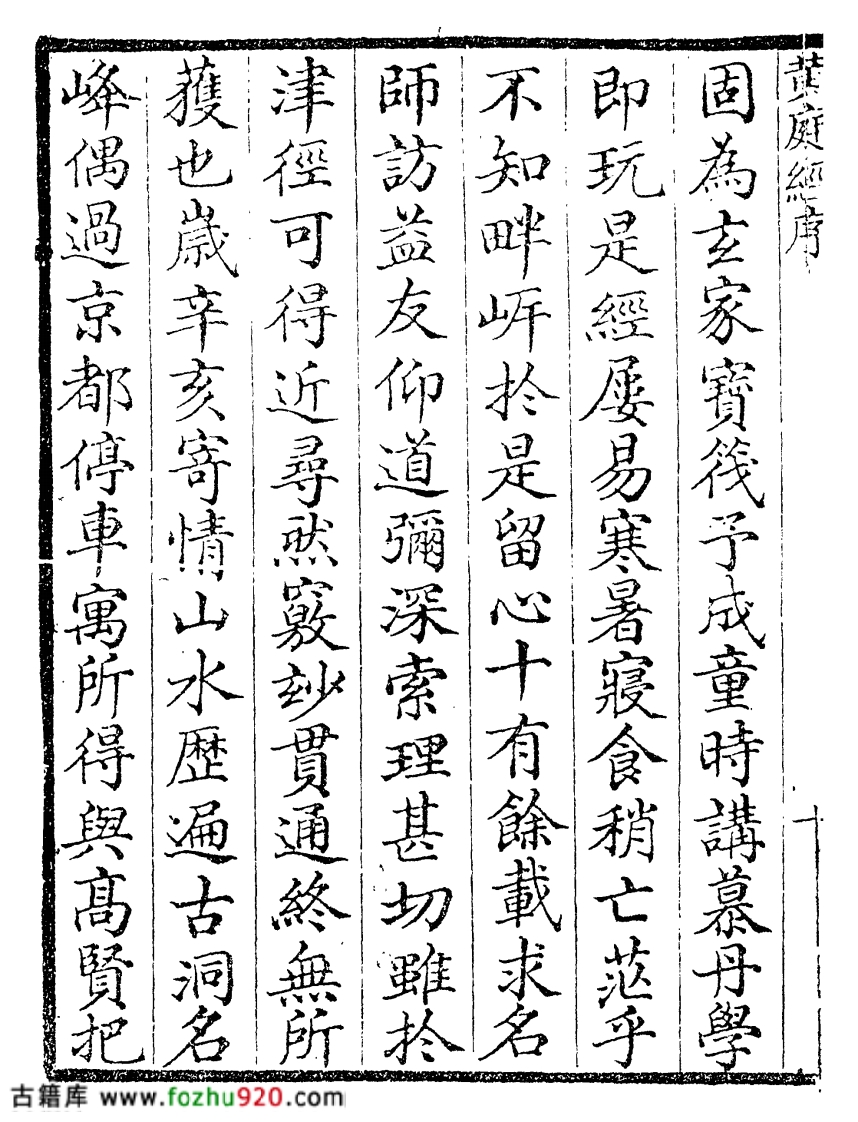 黄庭經序
十
固為玄家寶筏予成童時講慕丹學
即玩是經屢易寒暑寢食稍亡茫乎
不知畔岸於是留心十有餘載求名
師訪益友仰道彌深索理甚切雖於
津徑可得近尋然竅玅貫通終無所
獲也歳辛亥寄情山水歴遍古洞名
峰偶過京都停車寓所得與髙賢把
古籍库 www.fozhu920.com